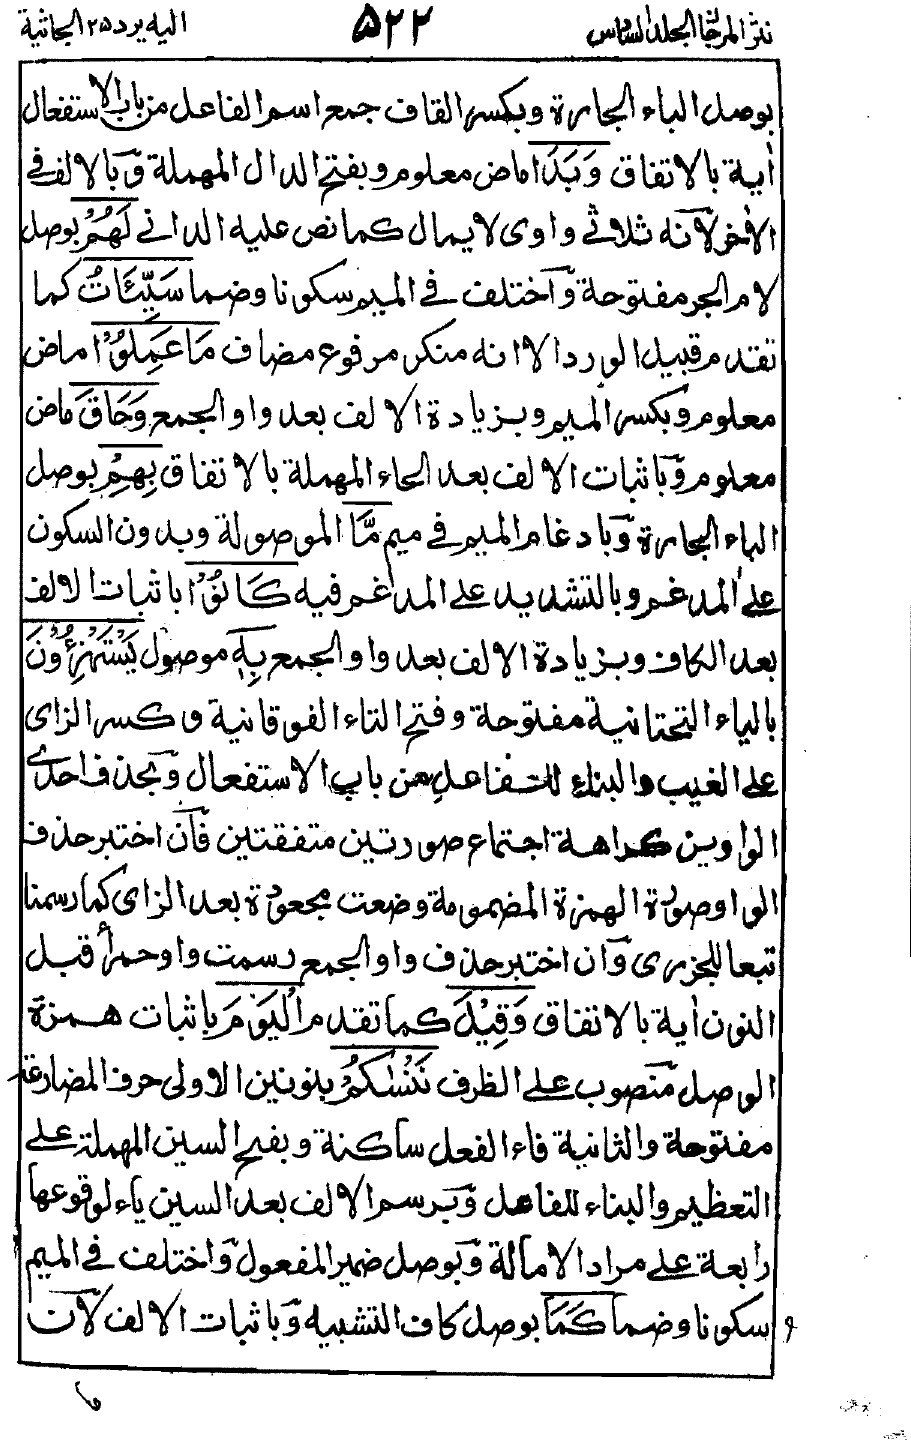 نثر المرجان المجلد السادس
٥٢٢
اليه يرد ٢٥ الجاثية
بوصل الباء الجارة وبكسر القاف جمع اسم الفاعل من باب الاستفعال
أية بالاتفاق وَبَدَا ماض معلوم وبفتح الدال المهملة وبالالف فى
الأخر لانه ثلاثى واوى لايمال كما نص عليه الدانى لَهُمْ بوصل
لام الجر مفتوحة واختلف فى الميم سكونا وضما سَيِّئَاتُ كما
تقدم قبيل الورد الا انه منكر مرفوع مضاف مَا عَمِلُوْا ماض
معلوم وبكسر الميم وبزيادة الالف بعد واو الجمع وَحَاقَ ماض
معلوم وباثبات الالف بعد الحاء المهملة بالاتفاق بِهِمْ بوصل
الباء الجارة وبادغام الميم فى ميم مَّا الموصولة وبدون السكون
على المدغم وبالتشديد على المدغم فيه كَانُوْا باثبات الالف
بعد الكاف وبزيادة الالف بعد واو الجمع بِهٖ موصول يَسْتَهْزِءُوْنَ
بالياء التحتانية مفتوحة وفتح التاء الفوقانية وكسر الزاى
على الغيب والبناء للفاعل من باب الاستفعال وبحذف احدى
الواوين كراهة اجتماع صورتين متفقتين فان اختبر حذف
الواو صورة الهمزة المضمومة وضعت مجعودة بعد الزاى كما رسمنا
تبعا للجزرى وان اختبر حذف واو الجمع رسمت واو حمرأ قبل
النون أية بالاتفاق وَقِيْلَ كما تقدم اَلْيَوْمَ باثبات همزة
الوصل منصوب على الظرف نَنْسٰكُمْ بنونين الاولى حرف المضارعة
مفتوحة والثانية فاء الفعل ساكنة وبفتح السين المهملة على
التعظيم والبناء للفاعل وبرسم الالف بعد السين ياء لوقوعها
رابعة على مراد الامالة وبوصل ضمير المفعول واختلف فى الميم
سكونا وضما كَمَا بوصل كاف التشبيه وباثبات الالف لان